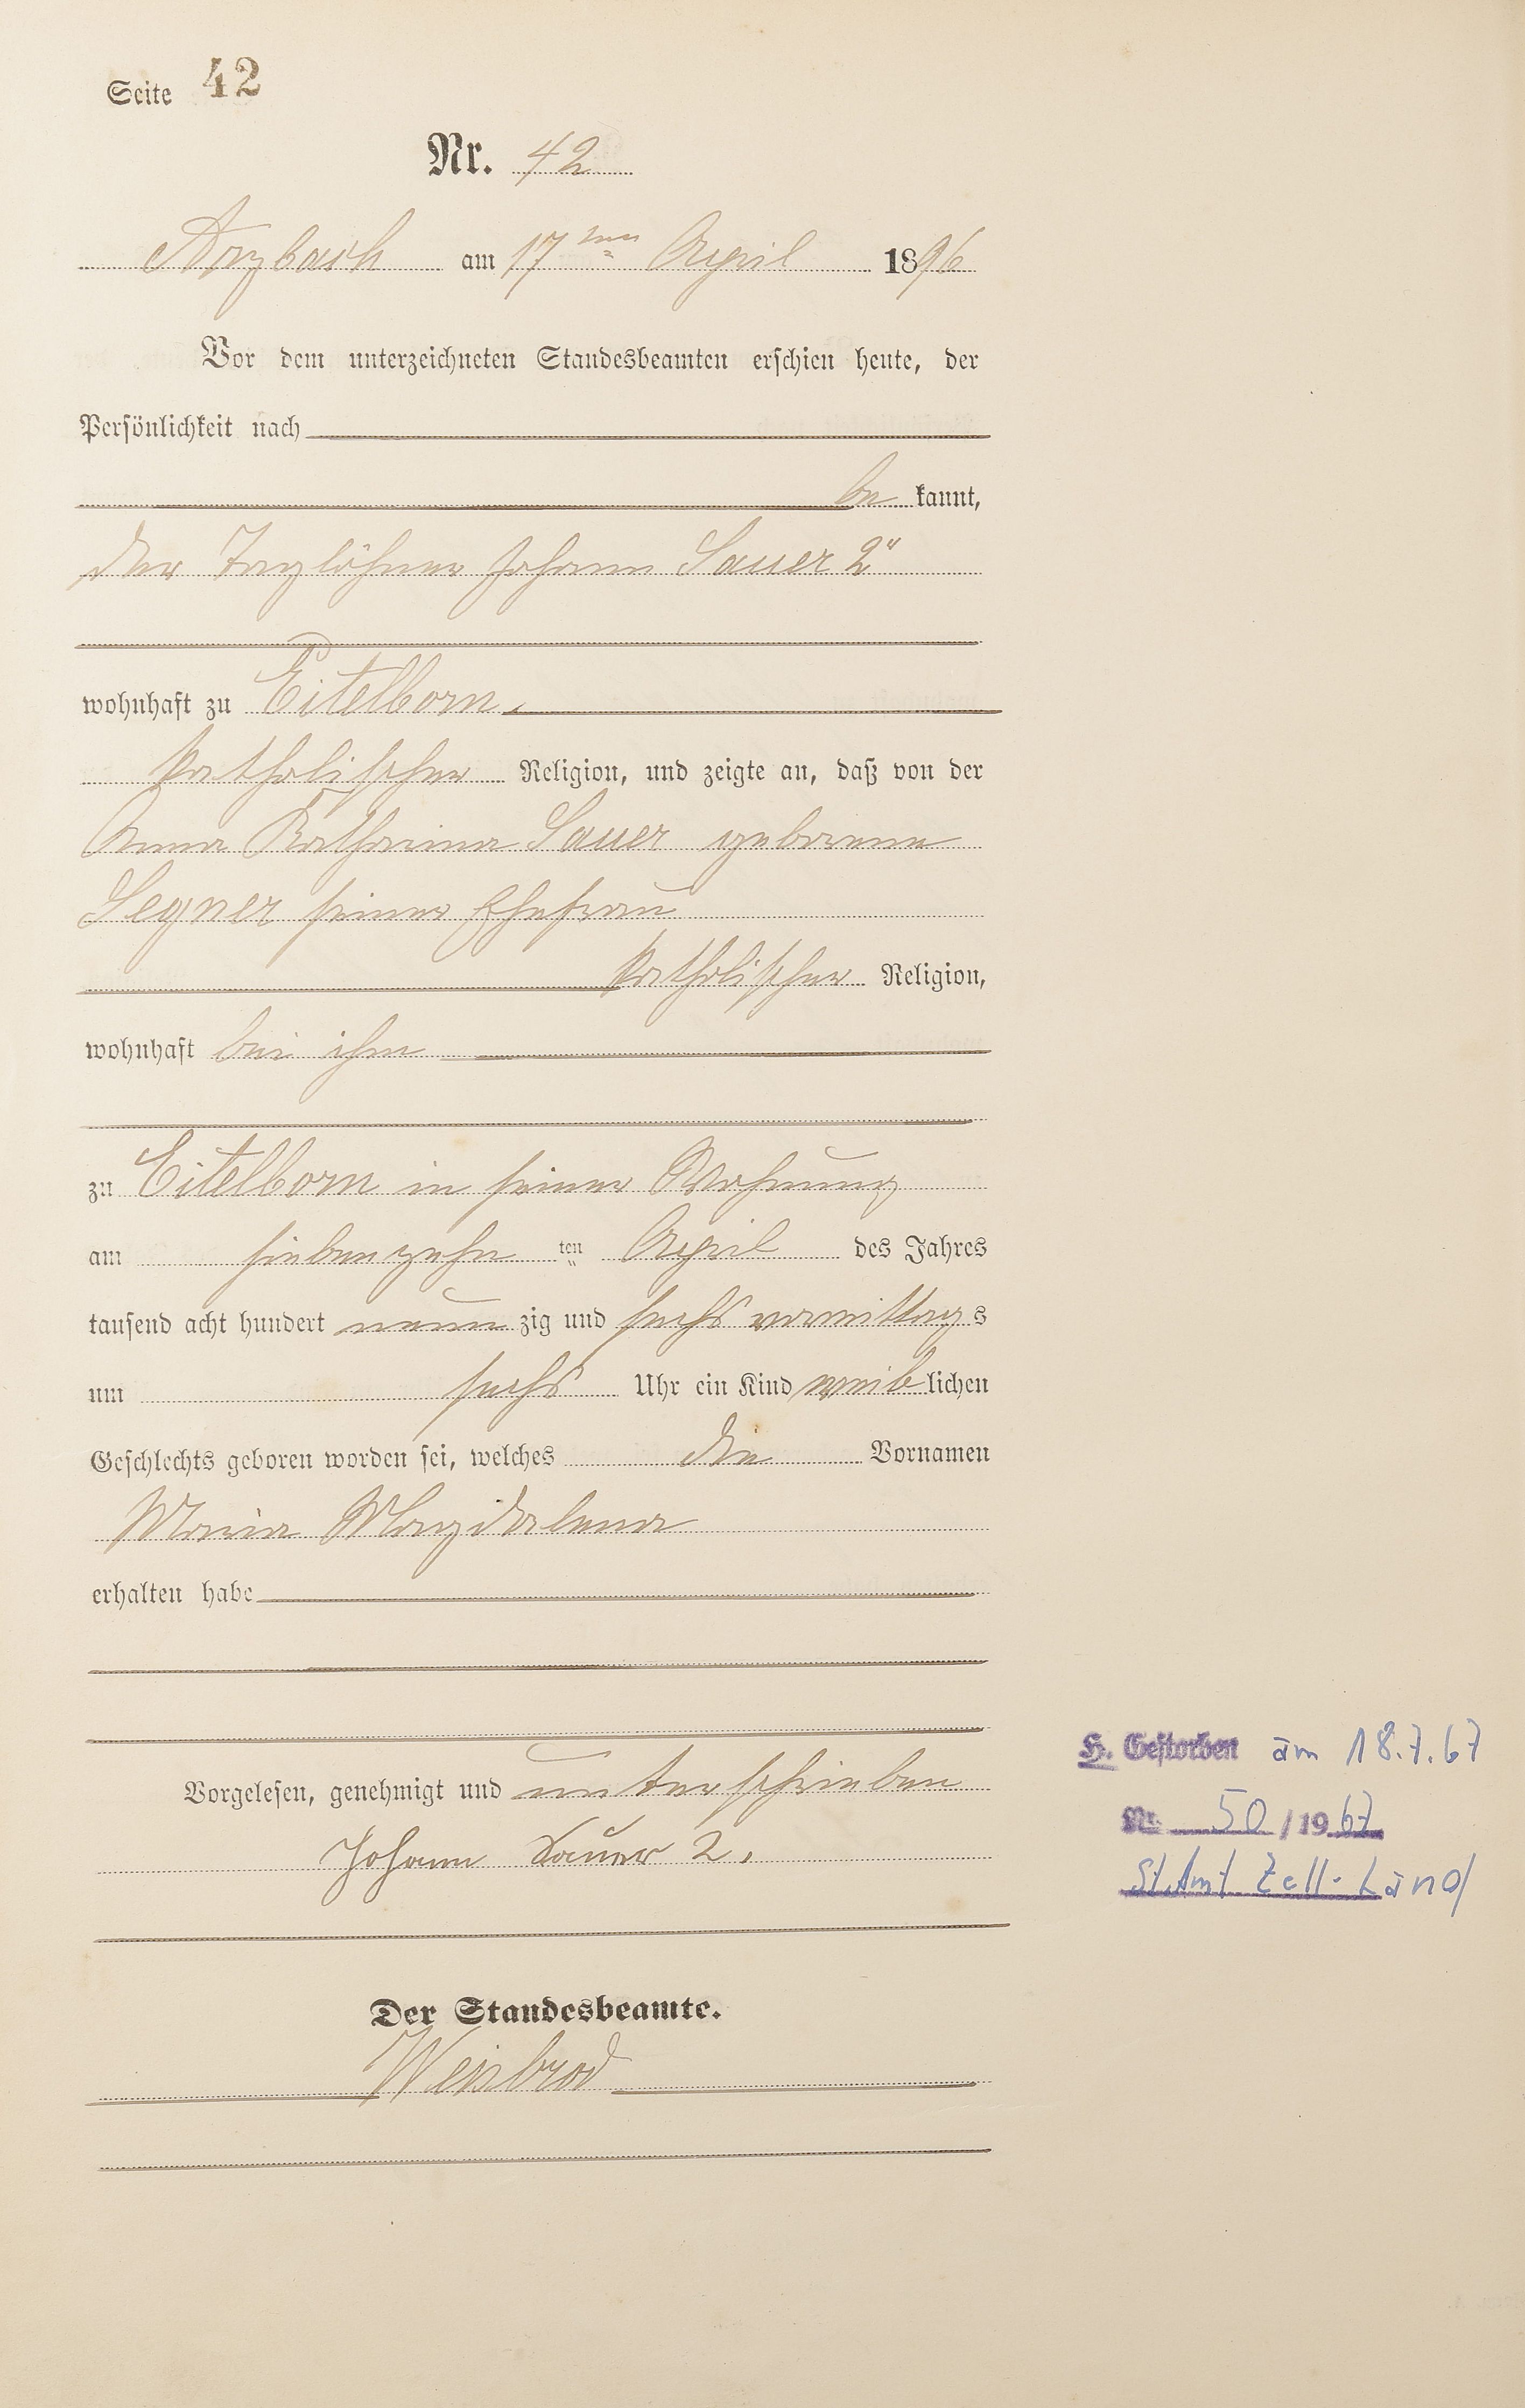 Seite 42
Nr. 42
Arzbach am 17ten April 1896
Vor dem unterzeichneten Standesbeamten erschien heute, der
Persönlichkeit nach
be kannt,
der Taglöhner Johann Sauer 2"
wohnhaft zu Eitelborn,
katholischer Religion, und zeigte an, daß von der
Anna Katharina Sauer geborene
Legner seiner Ehefrau
katholischer Religion,
wohnhaft bei ihm
zu Eitelborn in seiner Wohnung
am siebenzehn ten April des Jahres
tausend acht hundert neun zig und sechs vormittags
um sechs Uhr ein Kind weiblichen
Geschlechts geboren worden sei, welches die Vornamen
Maria Magdalena
erhalten habe
H. Gestorben am 18.7.67
Nr. 50/1967
St.Amt Zell-Land
Vorgelesen, genehmigt und unterschrieben
Johann Sauer 2.
Der Standesbeamte.
Weisbrod